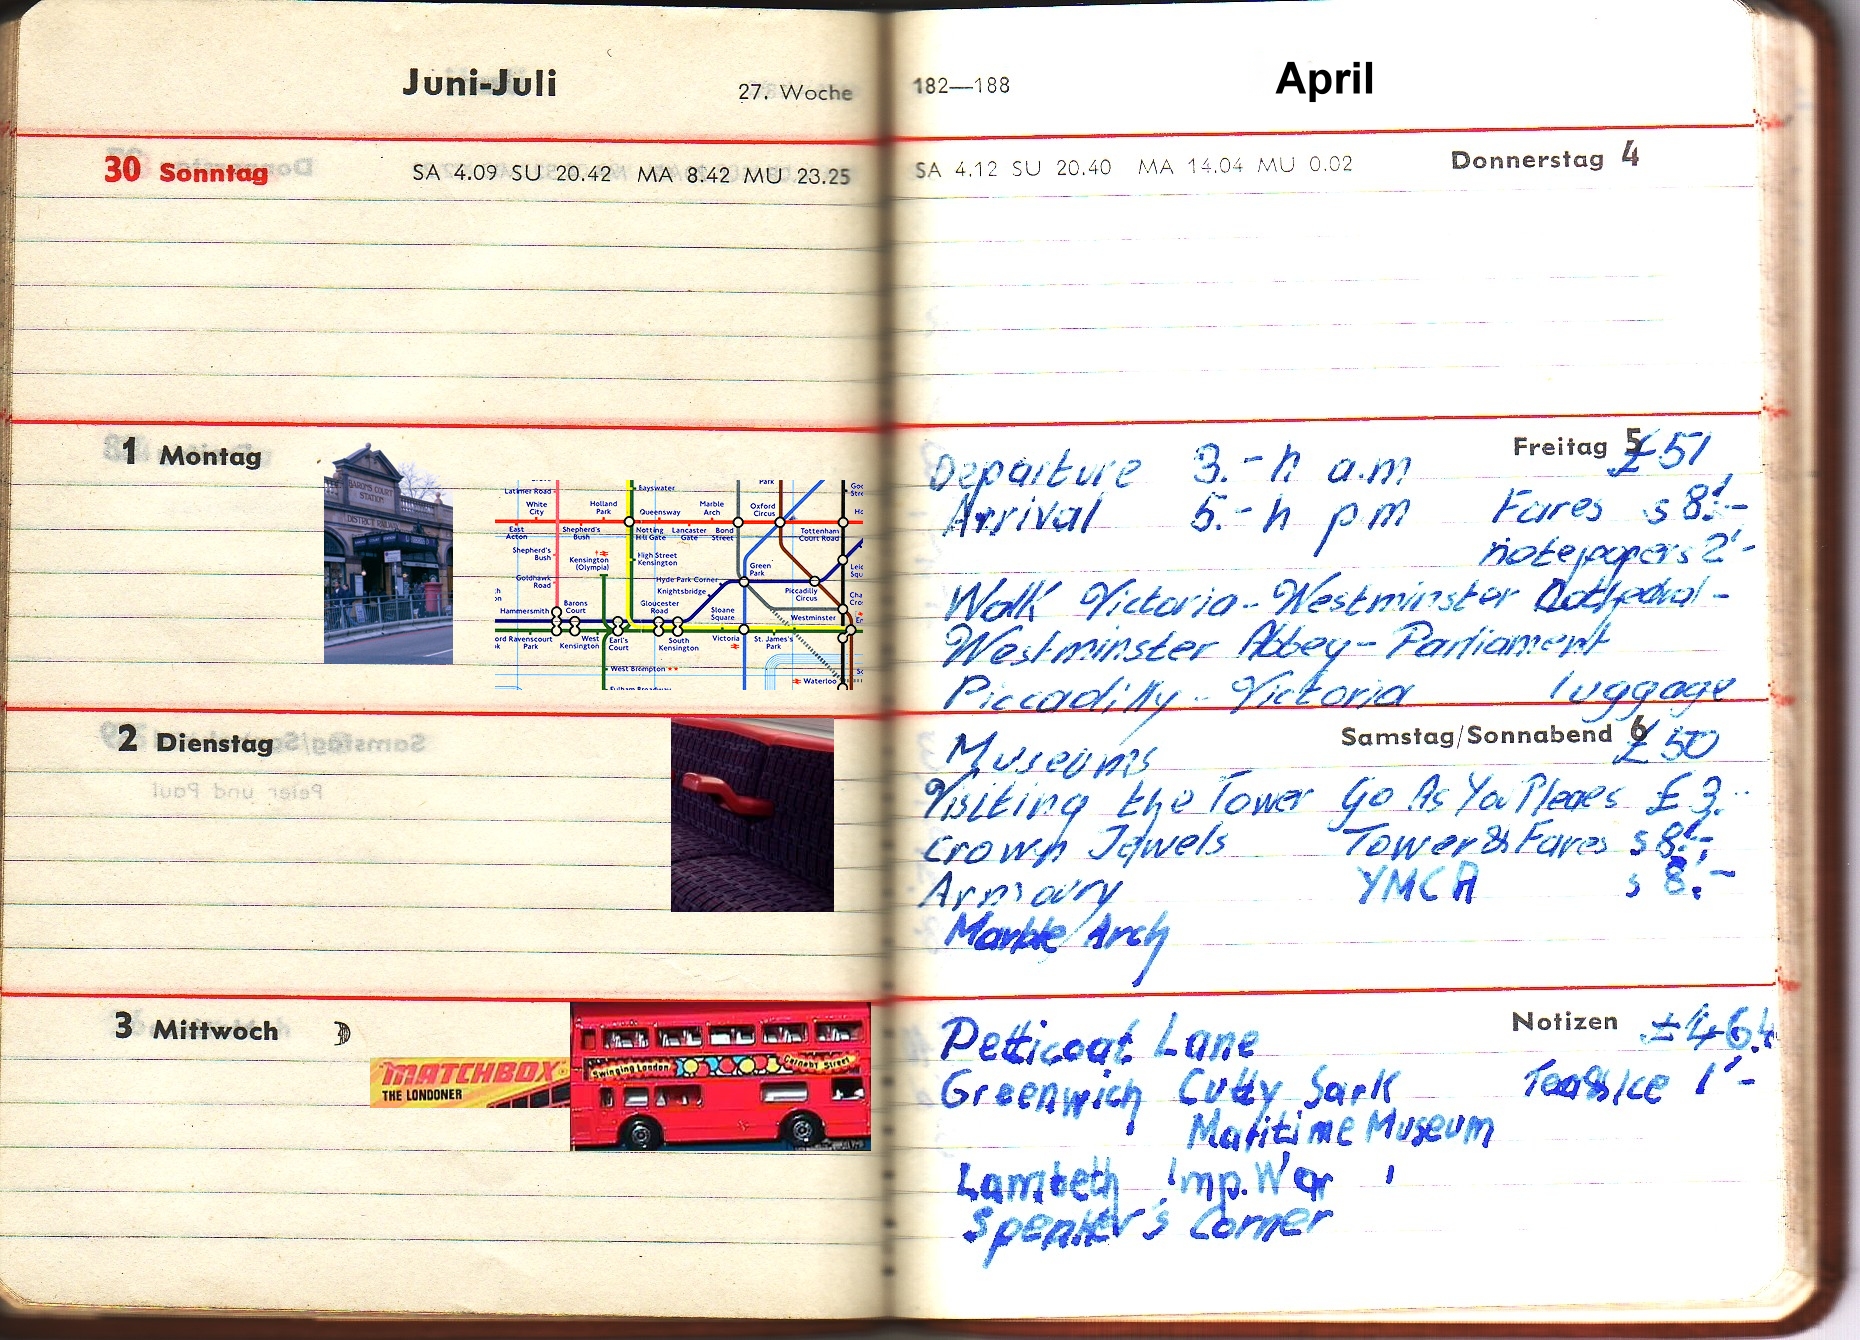 Juni-Juli
27. Woche
30 Sonntag
SA 4.09 SU 20.42 MA 8.42 MU 23.25
1 Montag
BARONS COURT
STATION
DISTRICT RAILWAY
Bayswater
Park
Latimer Road
White
City
Holland
Park
Queensway
Marble
Arch
Oxford
Circus
East
Acton
Shepherd's
Bush
Notting
Hill Gate
Lancaster
Gate
Bond
Street
Tottenham
Court Road
Shepherd's
Bush
Kensington
(Olympia)
High Street
Kensington
Green
Park
Goldhawk
Road
Hyde Park Corner
Knightsbridge
Piccadilly
Circus
Hammersmith
Barons
Court
Gloucester
Road
Sloane
Square
Westminster
Ravenscourt
Park
West
Kensington
Earl's
Court
South
Kensington
Victoria
St. James's
Park
West Brompton
Waterloo
Fulham Broadway
2 Dienstag
3 Mittwoch
MATCHBOX
THE LONDONER
Swinging London
Carnaby Street
182—188
April
SA 4.12 SU 20.40 MA 14.04 MU 0.02
Donnerstag 4
Freitag 5 £51
Departure 3.- h a.m
Arrival 5.- h pm Fares s 8'.-
notepapers 2'-
Walk Victoria - Westminster Cathedral -
Westminster Abbey - Parliament
Piccadilly - Victoria luggage
Samstag/Sonnabend 6 £50
Museums
Visiting the Tower Go As You Pleaes £3.-
Crown Jewels Tower & Fares s 8'.-
Armoury YMCA s 8'.-
Marble Arch
Notizen £46.
Petticoat Lane
Greenwich Cutty Sark Tea & Ice 1'-
Maritime Museum
Lambeth Imp. War
Speaker's Corner